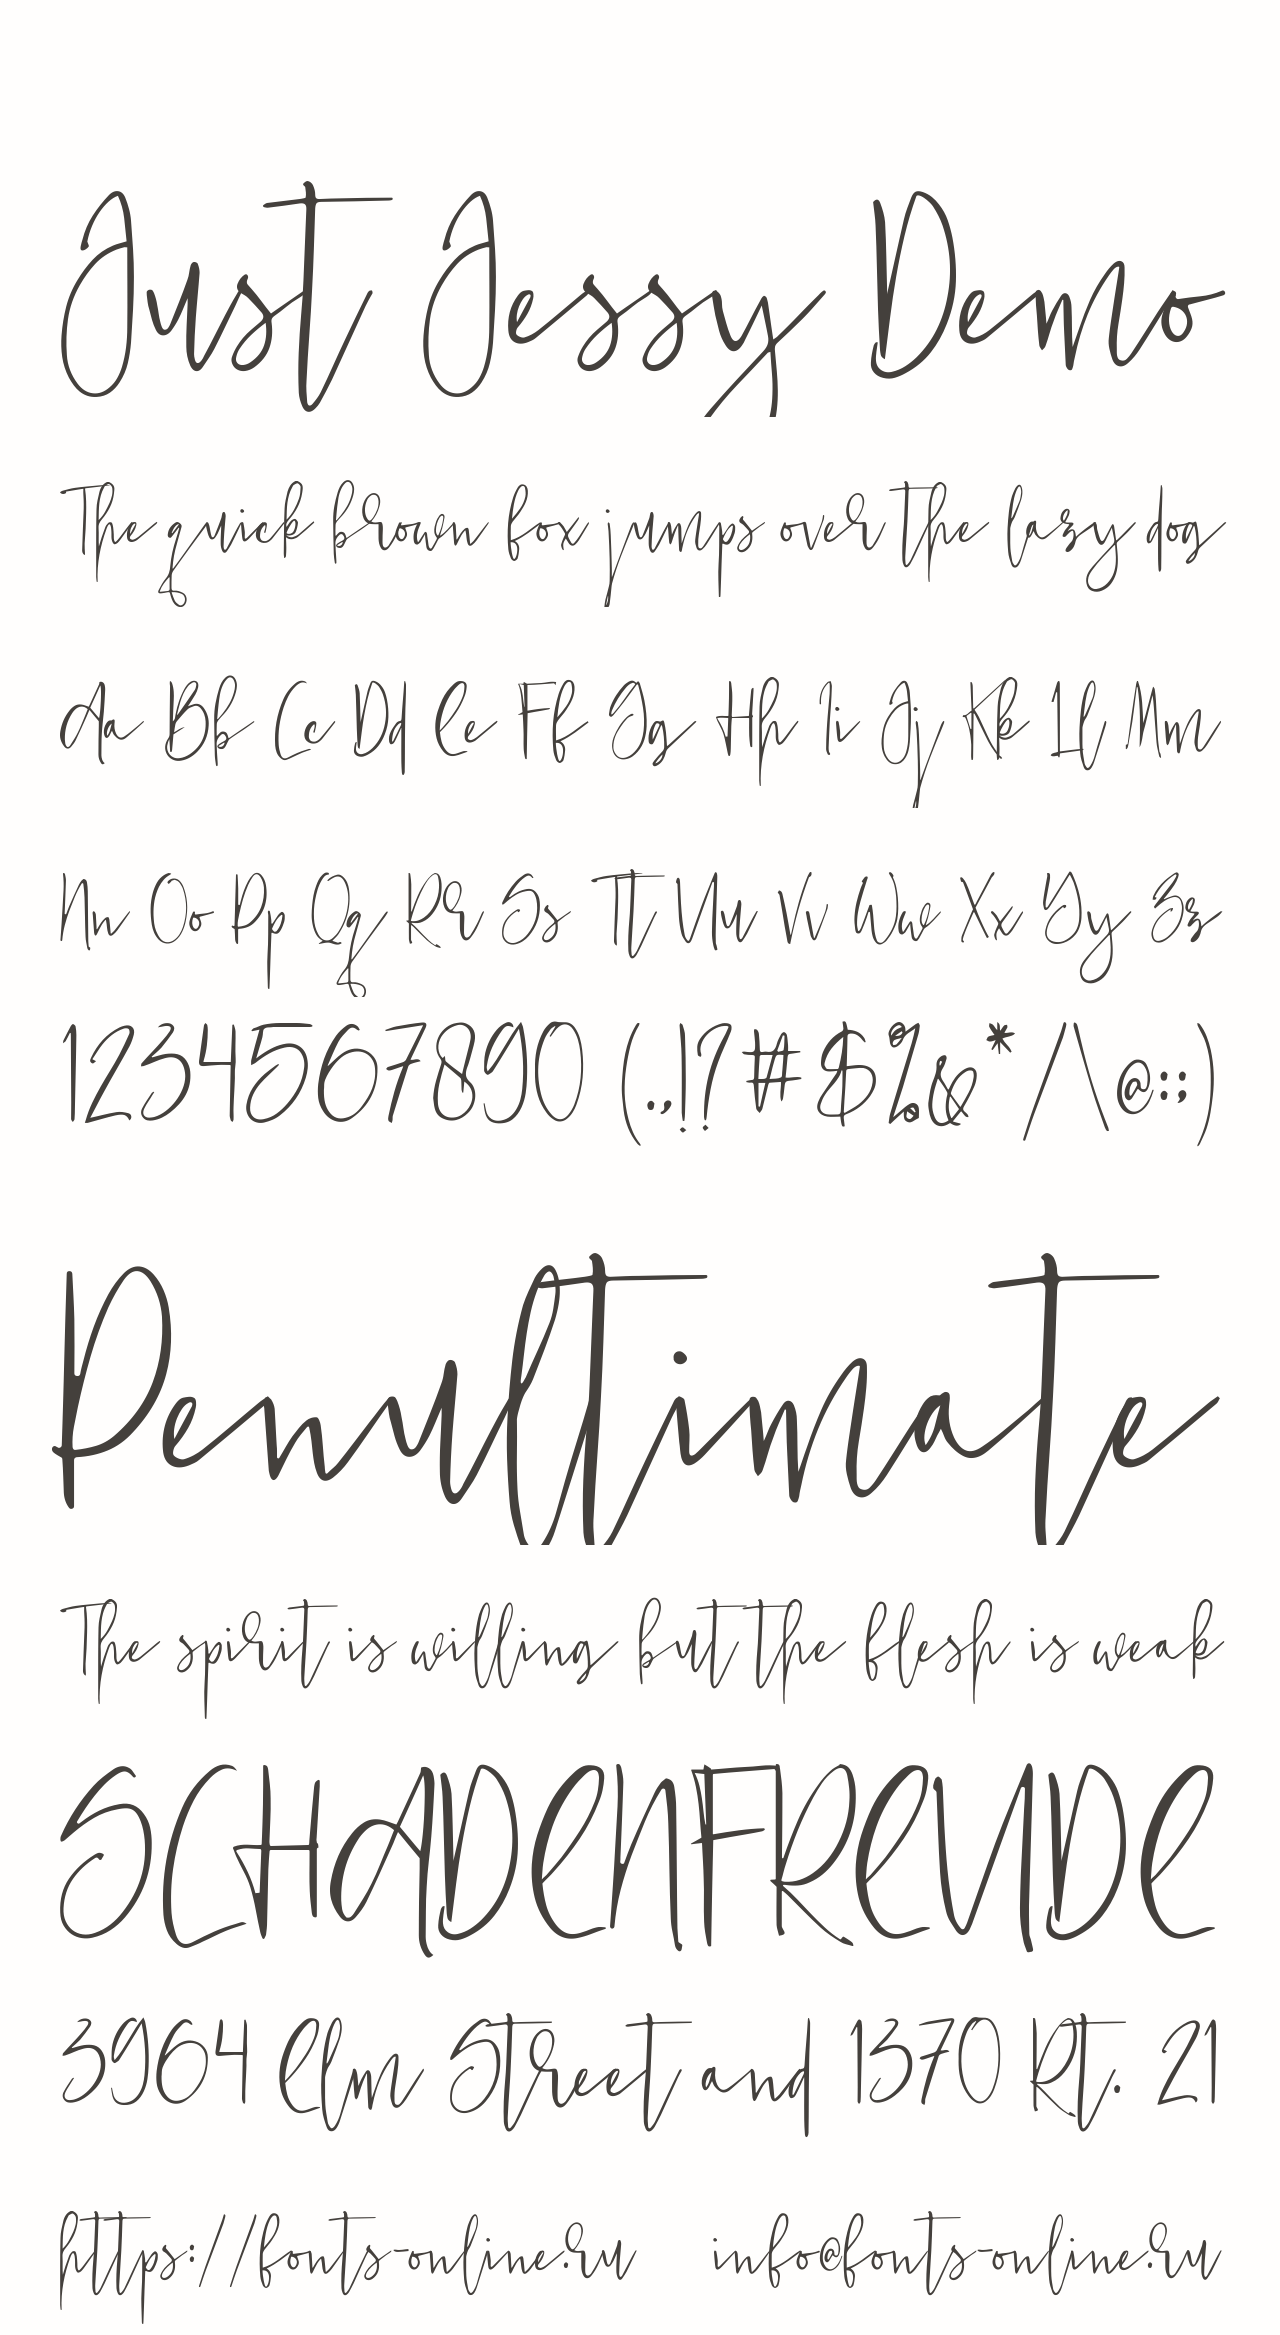 Just Jessy Demo
The quick brown fox jumps over the lazy dog
Aa Bb Cc Dd Ee Ff Gg Hh Ii Jj Kk Ll Mm
Nn Oo Pp Qq Rr Ss Tt Uu Vv Ww Xx Yy Zz
1234567890 (.,!?#$%&*/\@:;)
Penultimate
The spirit is willing but the flesh is weak
SCHADENFREUDE
3964 Elm Street and 1370 Rt. 21
https://fonts-online.ru info@fonts-online.ru